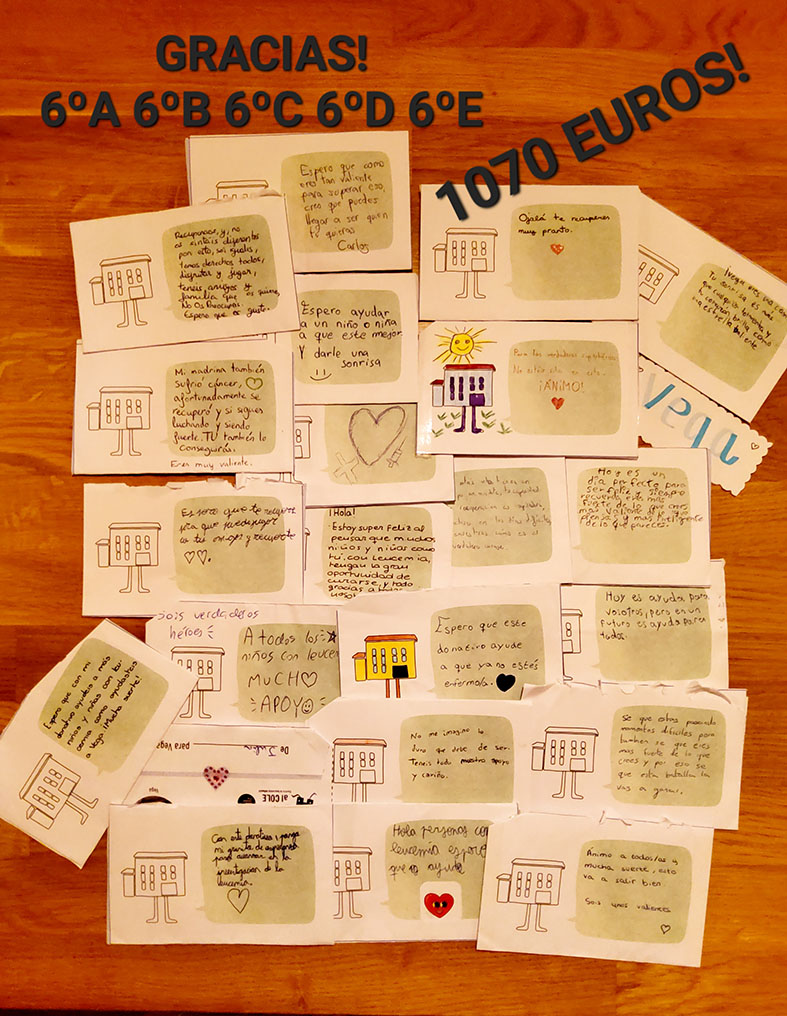 GRACIAS!
6ºA 6ºB 6ºC 6ºD 6ºE
1070 EUROS!
Espero que como
eres tan valiente
para superar eso,
creo que puedes
llegar a ser quien
tu quieras
Carlos
Recuperaros, y, no
os sintais diferentes
por esto, sois iguales,
tenéis derechos todos,
disfrutar y jugar,
teneis amigos y
familia que os quiere,
No Os Preocupeis.
Espero que os guste.
Ojalá te recuperes
muy pronto.
Tu sonrisa es más
Espero ayudar
a un niño o niña
a que este mejor.
Y darle una
sonrisa
Para los verdaderos superhéroes.
No estáis solos en esto.
¡ÁNIMO!
vega
Mi madrina también
sufrió cáncer,
afortunadamente se
recuperó y si sigues
luchando y siendo
fuerte. TU también lo
conseguirás.
Eres muy valiente.
Hoy es un
día perfecto para
ser feliz, siempre
recuerda eres más
fuerte de lo que crees
más valiente de lo que
piensas y mas inteligente
de lo que pareces.
Espero que te
para que puedas jugar
¡Hola!
Estoy super feliz al
pensar que muchos
niños y niñas como
tú, con leucemia,
tengan la gran
oportunidad de
curarse, y todo
gracias a
Hoy es ayuda para
vosotros, pero en un
futuro es ayuda para
todos.
sois verdaderos
héroes
A todos los
niños con leucem
MUCHO
APOYO
Espero que este
donativo ayude
a que ya no estés
enfermo/a.
Espero que con mi
donativo ayudéis a más
niños y niñas con
cancer como ayudasteis
a Vega ¡Mucha suerte!
De Julia
para Vega
al COLE
Vega
No me imagino lo
duro que debe de ser.
Teneis todo nuestro apoyo
y cariño.
Se que estas pasando
momentos dificiles pero
tambien se que eres
mas fuerte de lo que
crees y por eso se
que esta batalla la
vas a ganar.
Con este donativo, pongo
mi granito de arena
para avanzar en la
investigación de la
leucemia.
Hola personas con
leucemia espero
que os ayude
Ánimo a todos/as y
mucha suerte, esto
va a salir bien
Sois unos valientes